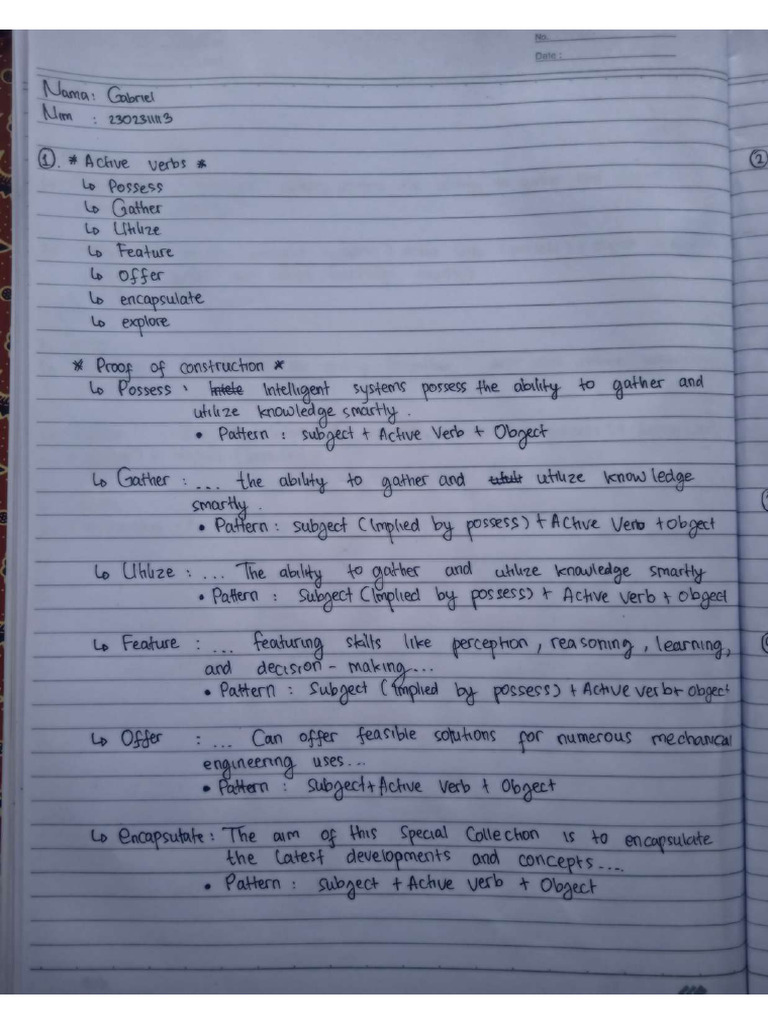 No.
Date :
Nama : Gabriel
Nim : 230231113
① * Active verbs *
↳ Possess
↳ Gather
↳ Utilize
↳ Feature
↳ Offer
↳ encapsulate
↳ explore
* Proof of construction *
↳ Possess : Intelligent systems possess the ability to gather and
utilize knowledge smartly.
• Pattern : subject + Active Verb + Object
↳ Gather : ... the ability to gather and utilize knowledge
smartly.
• Pattern : subject (Implied by possess) + Active Verb + object
↳ Utilize : ... The ability to gather and utilize knowledge smartly
• Pattern : Subject (Implied by possess) + Active verb + object
↳ Feature : ... featuring skills like perception, reasoning, learning,
and decision-making...
• Pattern : Subject (implied by possess) + Active verb + object
↳ Offer : ... Can offer feasible solutions for numerous mechanical
engineering uses...
• Pattern : Subject + Active verb + Object
↳ encapsulate : The aim of this Special Collection is to encapsulate
the latest developments and concepts....
• Pattern : subject + Active verb + Object
②